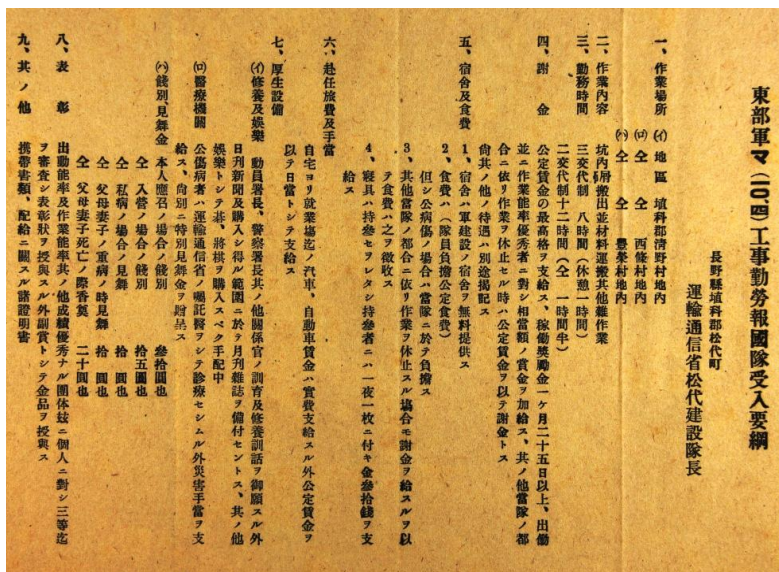 東部軍マ(一〇、四)工事勤勞報國隊受入要綱
長野縣埴科郡松代町
運輸通信省松代建設隊長
一、作業場所 (イ) 地區 埴科郡清野村地內
(ロ) 仝 仝 西條村地內
(ハ) 仝 仝 豐榮村地內
二、作業內容 坑內ズリ搬出並材料運搬其他雜作業
三、勤務時間 三交代制 八時間(休憩一時間)
二交代制十二時間(仝 一時間半)
四、謝金 公定賃金の最高格ヲ支給ス、稼働奬勵金一ケ月二十五日以上、出働
並ニ作業能率優秀者ニ對シ相當額ノ賞金ヲ加給ス、其ノ他當隊ノ都
合ニ依リ作業ヲ休止セル時ハ公定賃金ヲ以テ謝金トス
尙其ノ他ノ待遇ハ別途揭記ス
五、宿舍及食費 1、宿舍ハ軍建設ノ宿舍ヲ無料提供ス
2、食費ハ(隊員負擔公定食費)
但シ公病傷ノ場合ハ當隊ニ於テ負擔ス
3、其他當隊ノ都合ニ依リ作業ヲ休止スル場合モ謝金ヲ給スルヲ以
テ食費ハ之ヲ徵收ス
4、寢具ハ持參セラレタシ持參者ニハ一夜一枚ニ付キ金參拾錢ヲ支
給ス
六、赴任旅費及手當
自宅ヨリ就業場迄ノ汽車、自動車賃金ハ實費支給スル外公定賃金ヲ
以テ日當トシテ支給ス
七、厚生設備
(イ) 修養及娛樂 動員署長、警察署長其ノ他關係官ノ訓育及修養訓話ヲ御願スル外
日刊新聞及購入シ得ル範圍ニ於テ月刊雜誌ヲ備付セントス、其ノ他
娛樂トシテ碁、將棋ヲ購入スベク手配中
(ロ) 醫療機關 公傷病者ハ運輸通信省ノ囑託醫ヲシテ診療セシムル外災害手當ヲ支
給ス、尙別ニ特別見舞金ヲ贈呈ス
(ハ) 餞別、見舞金 本人應召ノ場合ノ餞別 參拾圓也
仝 入營ノ場合ノ餞別 拾五圓也
仝 私病ノ場合ノ見舞 拾圓也
仝 父母妻子ノ重病ノ時見舞 拾圓也
仝 父母妻子死亡ノ際香奠 二十圓也
八、表彰 出動能率及作業能率其ノ他成績優秀ナル團体玆ニ個人ニ對シ三等迄
ヲ審査シ表彰狀ヲ授與スル外副賞トシテ金品ヲ授與ス
九、其ノ他 携帶書類、配給ニ關スル諸證明書